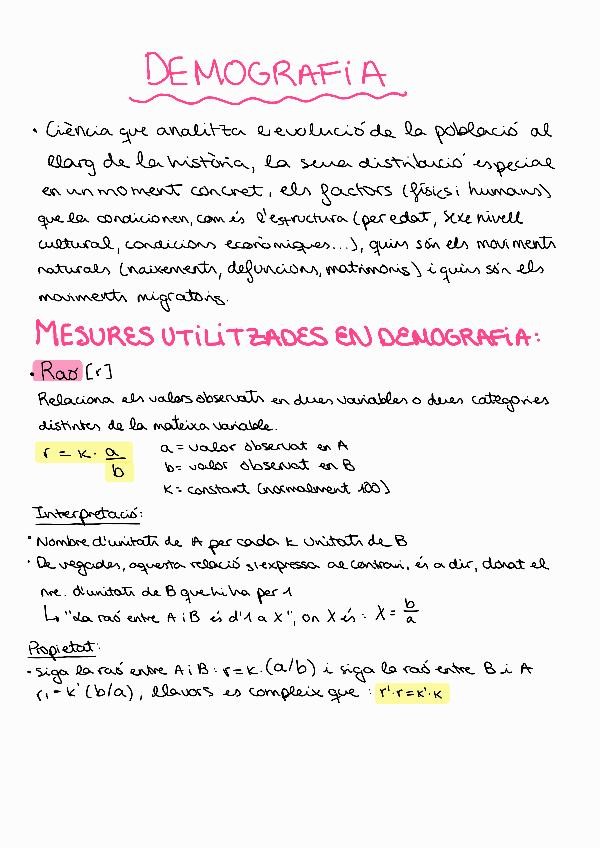 DEMOGRAFIA
· Ciència que analitza l'evolució de la població al
llarg de la història, la seua distribució especial
en un moment concret, els factors (físics i humans)
que la condicionen, com és l'estructura (per edat, sexe nivell
cultural, condicions econòmiques...), quins són els moviments
naturals (naixements, defuncions, matrimonis) i quins són els
moviments migratoris.
MESURES UTILITZADES EN DEMOGRAFIA:
· Raó [r]
Relaciona els valors observats en dues variables o dues categories
distintes de la mateixa variable.
r = k · a/b
a = valor observat en A
b = valor observat en B
k = constant (normalment 100)
Interpretació:
· Nombre d'unitats de A per cada k unitats de B
· De vegades, aquesta relació s'expressa al contrari, és a dir, donat el
nre. d'unitats de B que hi ha per 1
↳ "La raó entre A i B és d'1 a X", on X és: X = b/a
Propietat:
- siga la raó entre A i B: r = k · (a/b) i siga la raó entre B i A
r₁ = k' (b/a), llavors es compleix que: r'·r = k'·k